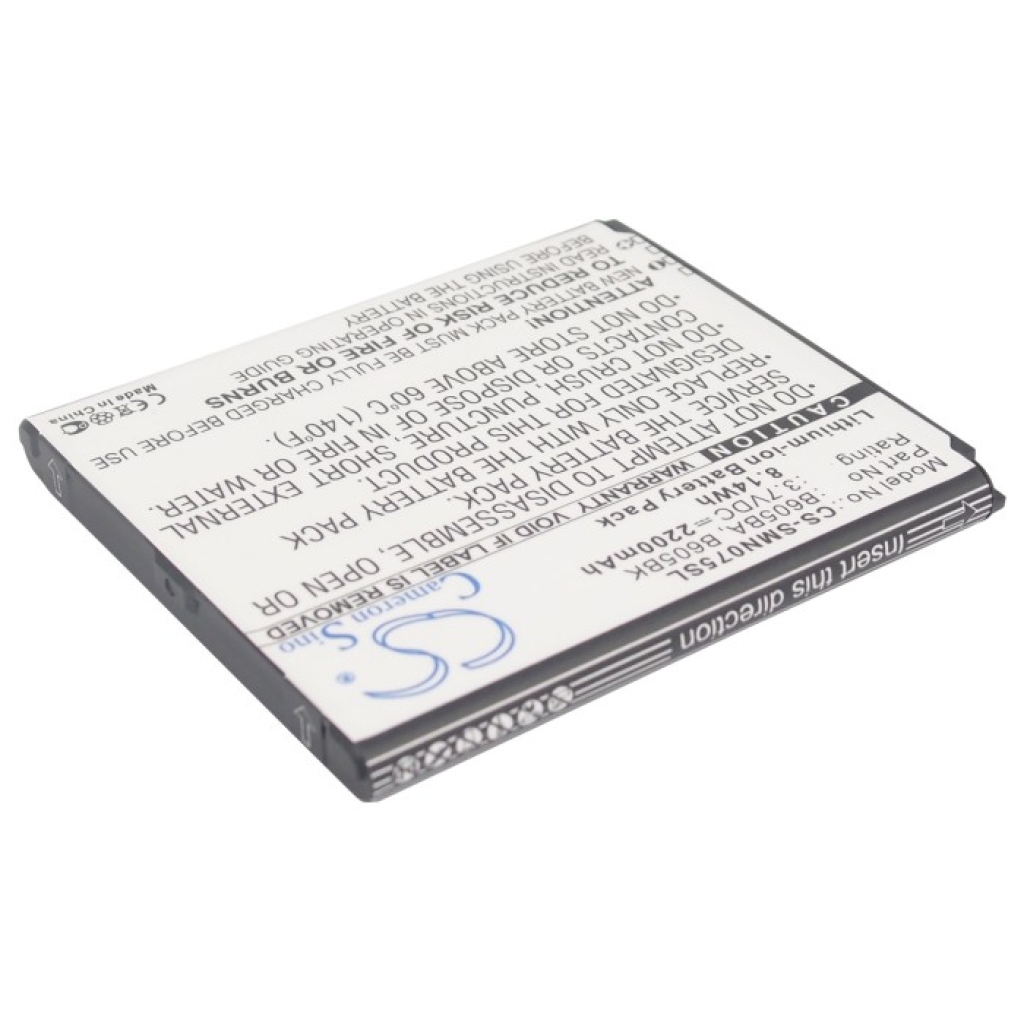 Cameron Sino
CS
Model No.: CS-SMN075SL
Part No.: B605BA, B605BK
Rating: 3.7VDC 2200mAh
8.14Wh
Lithium-ion Battery Pack
CAUTION WARRANTY VOID IF LABEL IS REMOVED
•DO NOT ATTEMPT TO DISASSEMBLE, OPEN OR
SERVICE THE BATTERY PACK
•REPLACE ONLY WITH THE BATTERY PACK
DESIGNATED FOR PRODUCT.
•DO NOT CRUSH, PUNCTURE, SHORT EXTERNAL
CONTACTS OR DISPOSE OF IN FIRE OR WATER.
•DO NOT STORE ABOVE 60°C (140°F).
ATTENTION!
NEW BATTERY PACK MUST BE FULLY CHARGED BEFORE USE
TO REDUCE RISK OF FIRE OR BURNS
READ INSTRUCTIONS IN OPERATING GUIDE
BEFORE USING THE BATTERY
CE
Made in China
Insert this direction